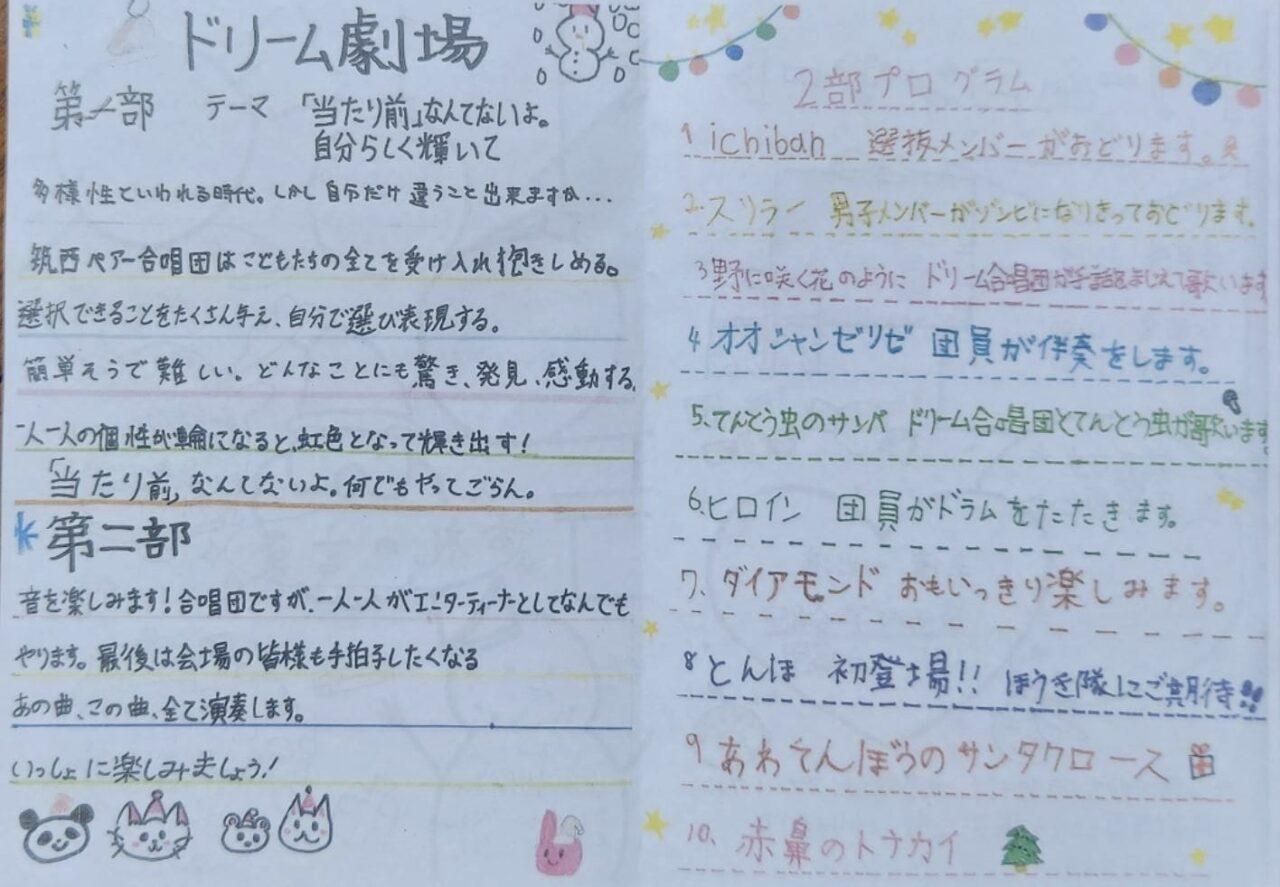 ドリーム劇場
第一部 テーマ 「当たり前」なんてないよ。
自分らしく輝いて
多様性といわれる時代。しかし自分だけ違うこと出来ますか...
筑西ペアー合唱団はこどもたちの全てを受け入れ抱きしめる。
選択できることをたくさん与え、自分で選び表現する。
簡単そうで難しい。どんなことにも驚き、発見、感動する。
一人一人の個性が輪になると、虹色となって輝き出す!
「当たり前」なんてないよ。何でもやってごらん。
第二部
音を楽しみます!合唱団ですが、一人一人がエンターティーナーとしてなんでも
やります。最後は会場の皆様も手拍子したくなる
あの曲、この曲、全て演奏します。
いっしょに楽しみましょう!
2部プログラム
1 ichiban 選抜メンバーがおどります。
2.スリラー 男子メンバーがゾンビになりきっておどります。
3 野に咲く花のように ドリーム合唱団が手話をまじえて歌います
4 オオシャンゼリゼ 団員が伴奏をします。
5.てんとう虫のサンバ ドリーム合唱団とてんとう虫が歌います
6.ヒロイン 団員がドラムをたたきます。
7.ダイアモンド おもいっきり楽しみます。
8 とんぼ 初登場!! ほうき隊にご期待!!
9 あわてんぼうのサンタクロース
10.赤鼻のトナカイ